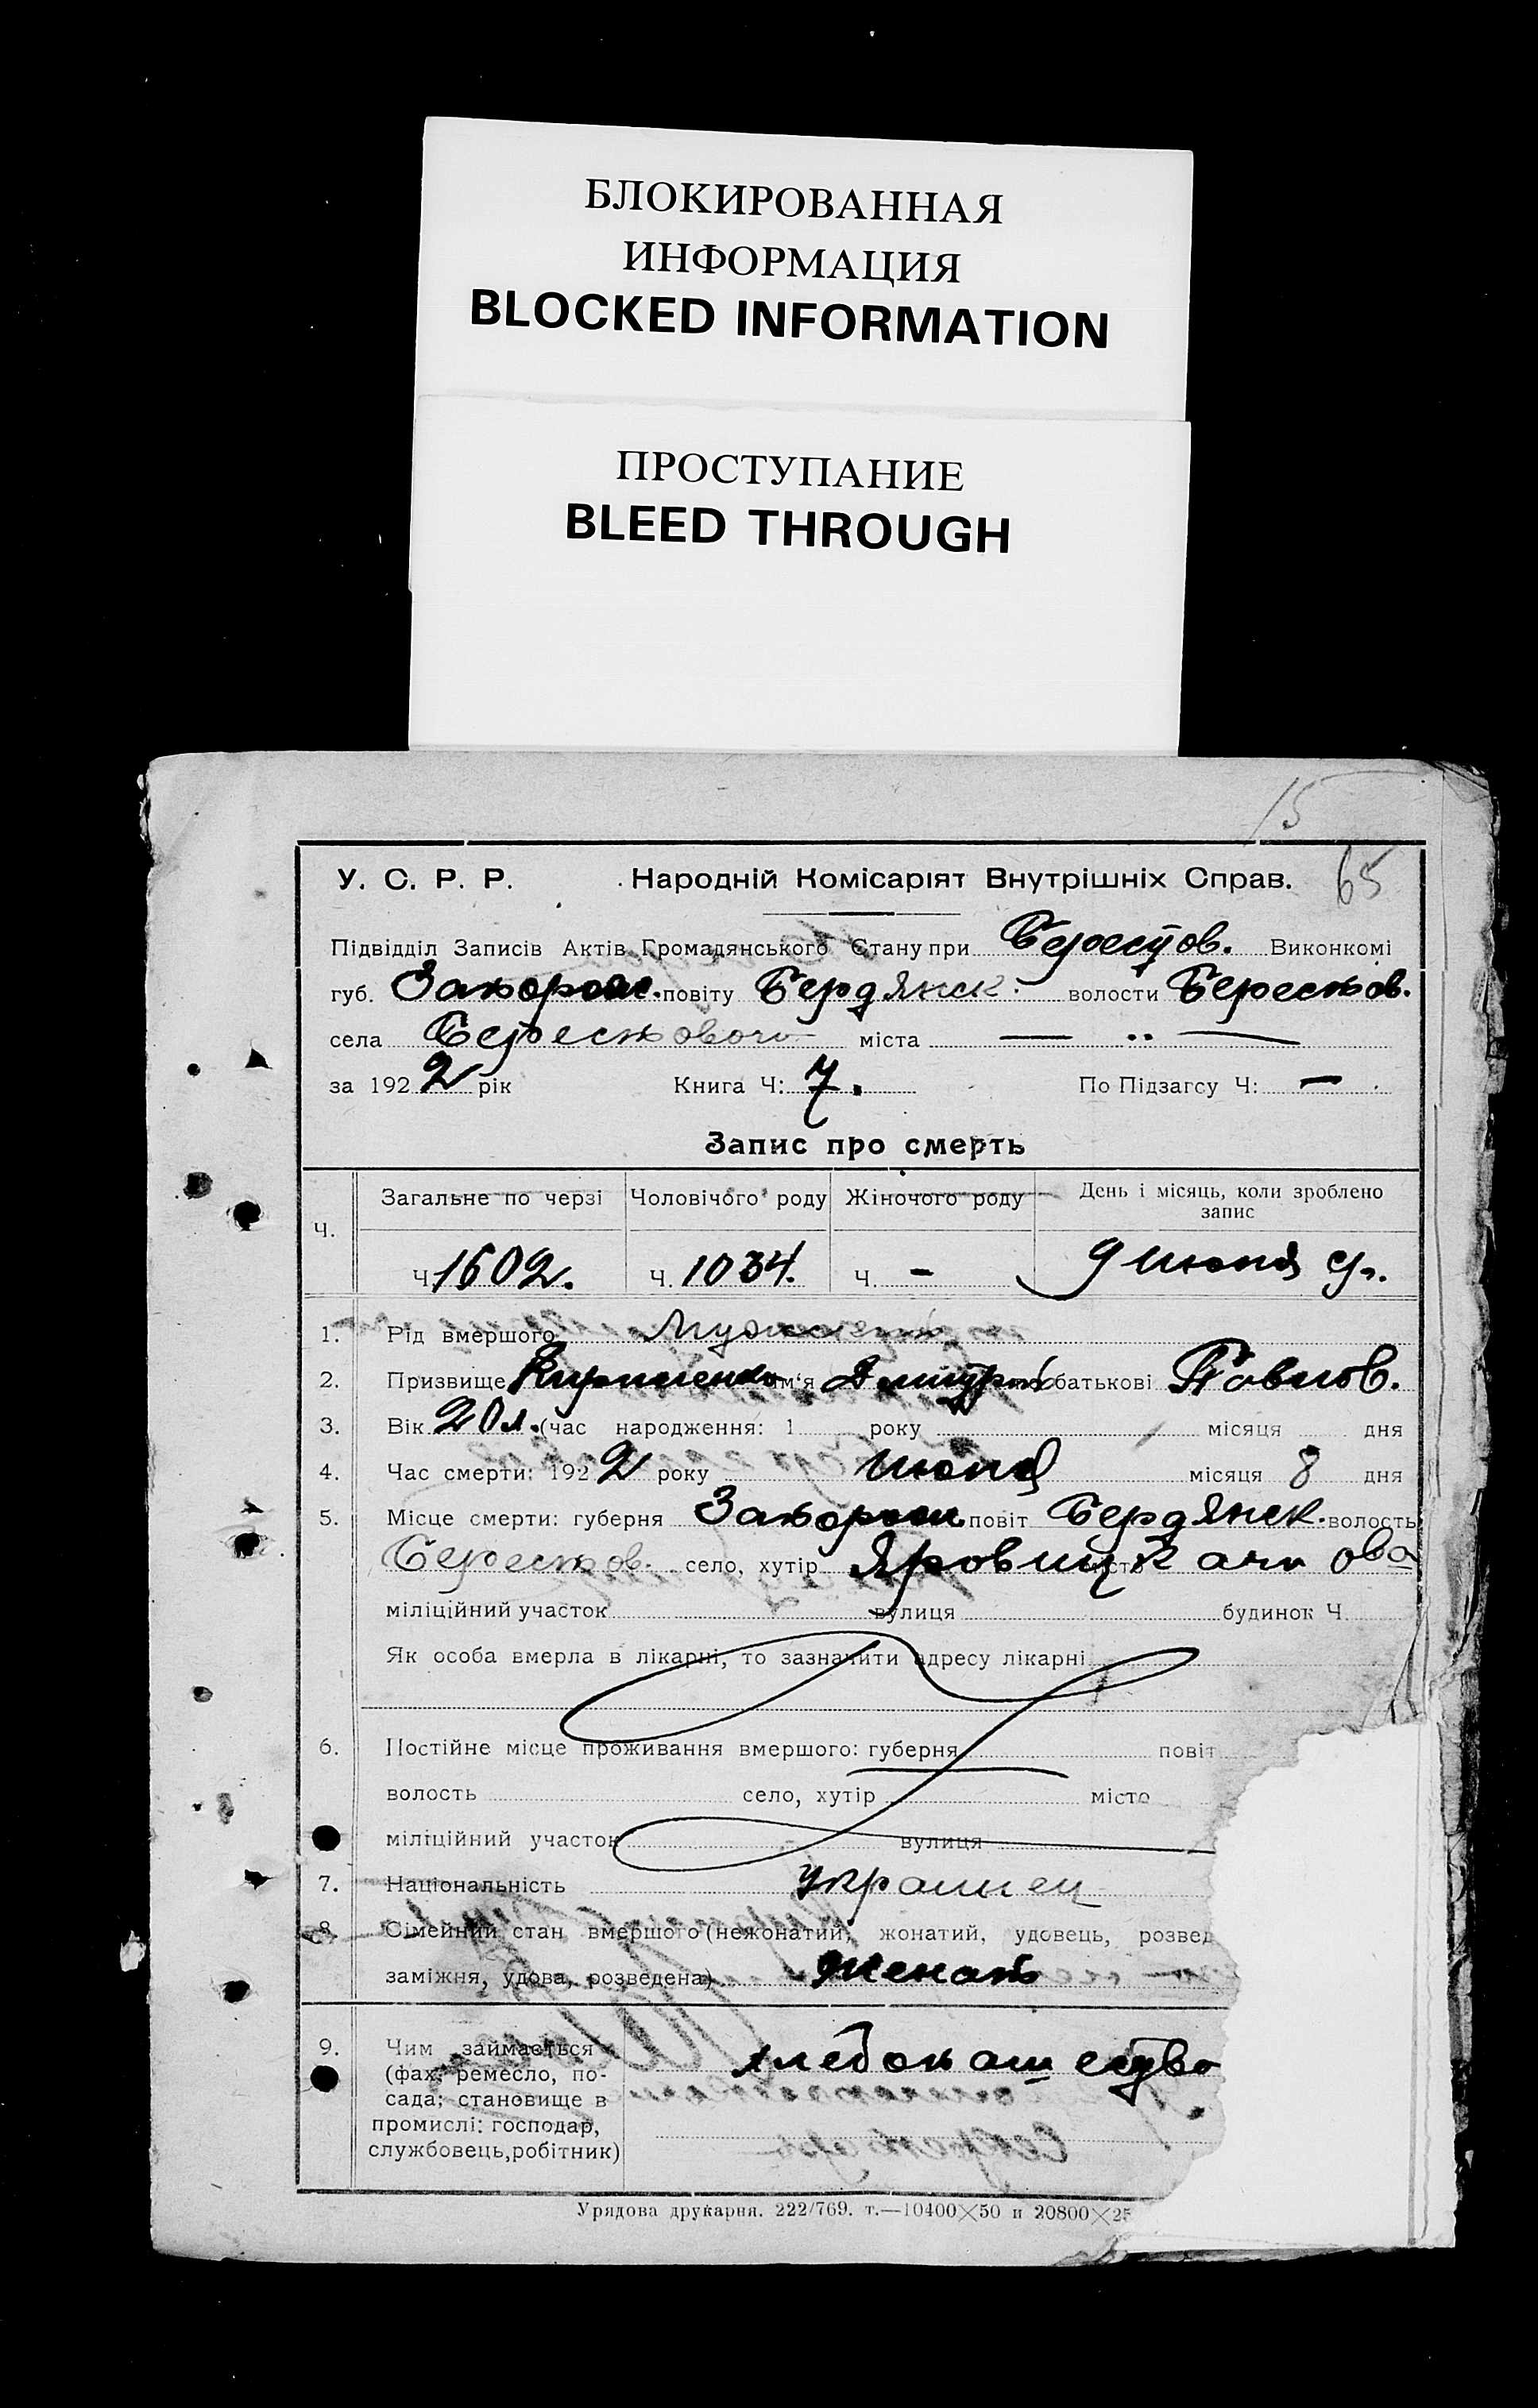 БЛОКИРОВАННАЯ
ИНФОРМАЦИЯ
BLOCKED INFORMATION
ПРОСТУПАНИЕ
BLEED THROUGH
15
У. С. Р. Р. Народній Комісаріят Внутрішніх Справ. 65
Підвідділ Записів Актів Громадянського Стану при Берестов. Виконкомі
губ. Запорож. повіту Бердянск. волости Берестов.
села Берестового міста — „ —
за 1922 рік Книга Ч: 7. По Підзагсу Ч: —
Запис про смерть
Ч. Загальне по черзі Чоловічого роду Жіночого роду День і місяць, коли зроблено запис
Ч. 1602. Ч. 1034. Ч. — 9 июня
1. Рід вмершого
2. Призвище Им'я Дмитрий по батькові Павлов.
3. Вік 20 л. (час народження: 1 року місяця дня
4. Час смерти: 1922 року июня місяця 8 дня
5. Місце смерти: губерня Запорож. повіт Бердянск. волость
Берестов. село, хутір місто
міліційний участок вулиця будинок Ч
Як особа вмерла в лікарні, то зазначити адресу лікарні
6. Постійне місце проживання вмершого: губерня повіт
волость село, хутір місто
міліційний участок вулиця
7. Національність украинец
8. Сімейний стан вмершого (нежонатий, жонатий, удовець, розвед
заміжня, удова, розведена) женат
9. Чим займається
(фах, ремесло, по-
сада; становище в
промислі: господар,
службовець, робітник)
хлебопашество
Урядова друкарня. 222/769. т.—10400×50 и 20800×25